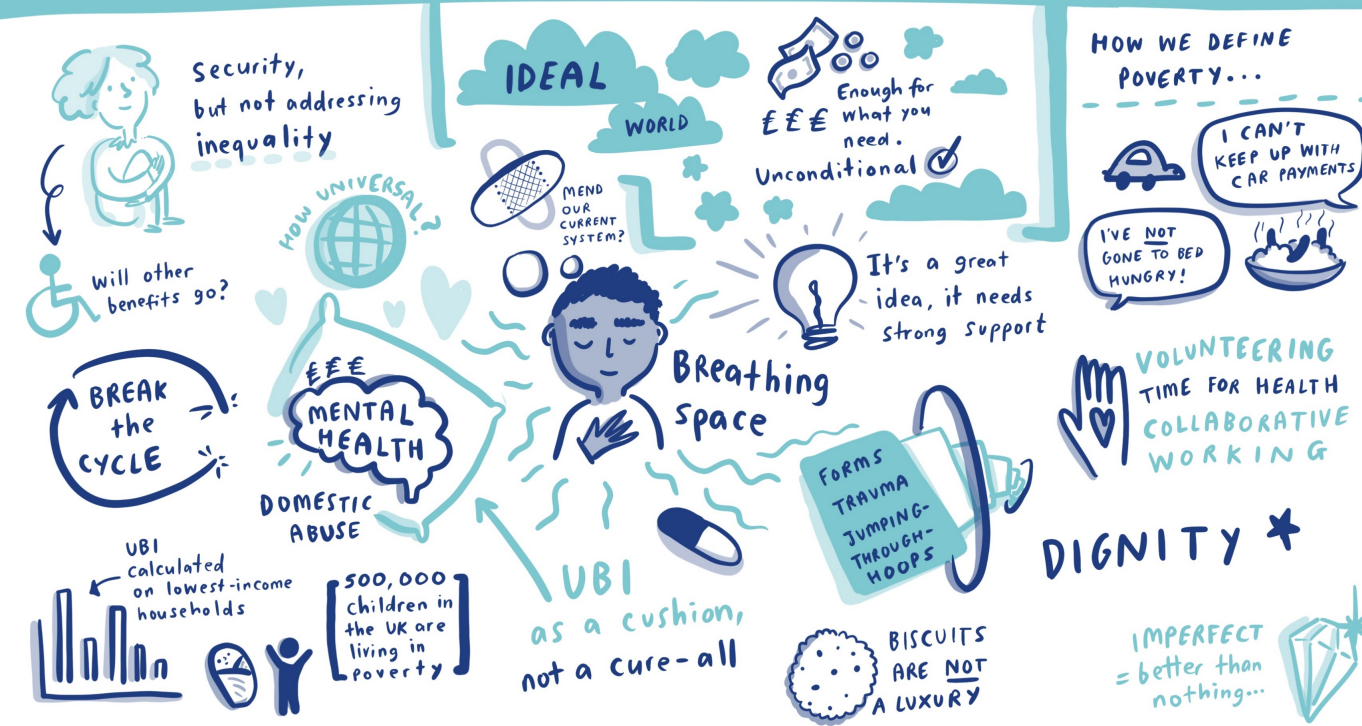 Security,
but not addressing
inequality
Will other
benefits go?
HOW UNIVERSAL?
BREAK
the
CYCLE
£££
MENTAL
HEALTH
DOMESTIC
ABUSE
UBI
calculated
on lowest-income
households
500,000
children in
the UK are
living in
poverty
IDEAL
WORLD
MEND
OUR
CURRENT
SYSTEM?
£££
Enough for
what you
need.
Unconditional
It's a great
idea, it needs
strong support
Breathing
space
UBI
as a cushion,
not a cure-all
FORMS
TRAUMA
JUMPING-
THROUGH-
HOOPS
BISCUITS
ARE NOT
A LUXURY
HOW WE DEFINE
POVERTY...
I CAN'T
KEEP UP WITH
CAR PAYMENTS
I'VE NOT
GONE TO BED
HUNGRY!
VOLUNTEERING
TIME FOR HEALTH
COLLABORATIVE
WORKING
DIGNITY
IMPERFECT
= better than
nothing...